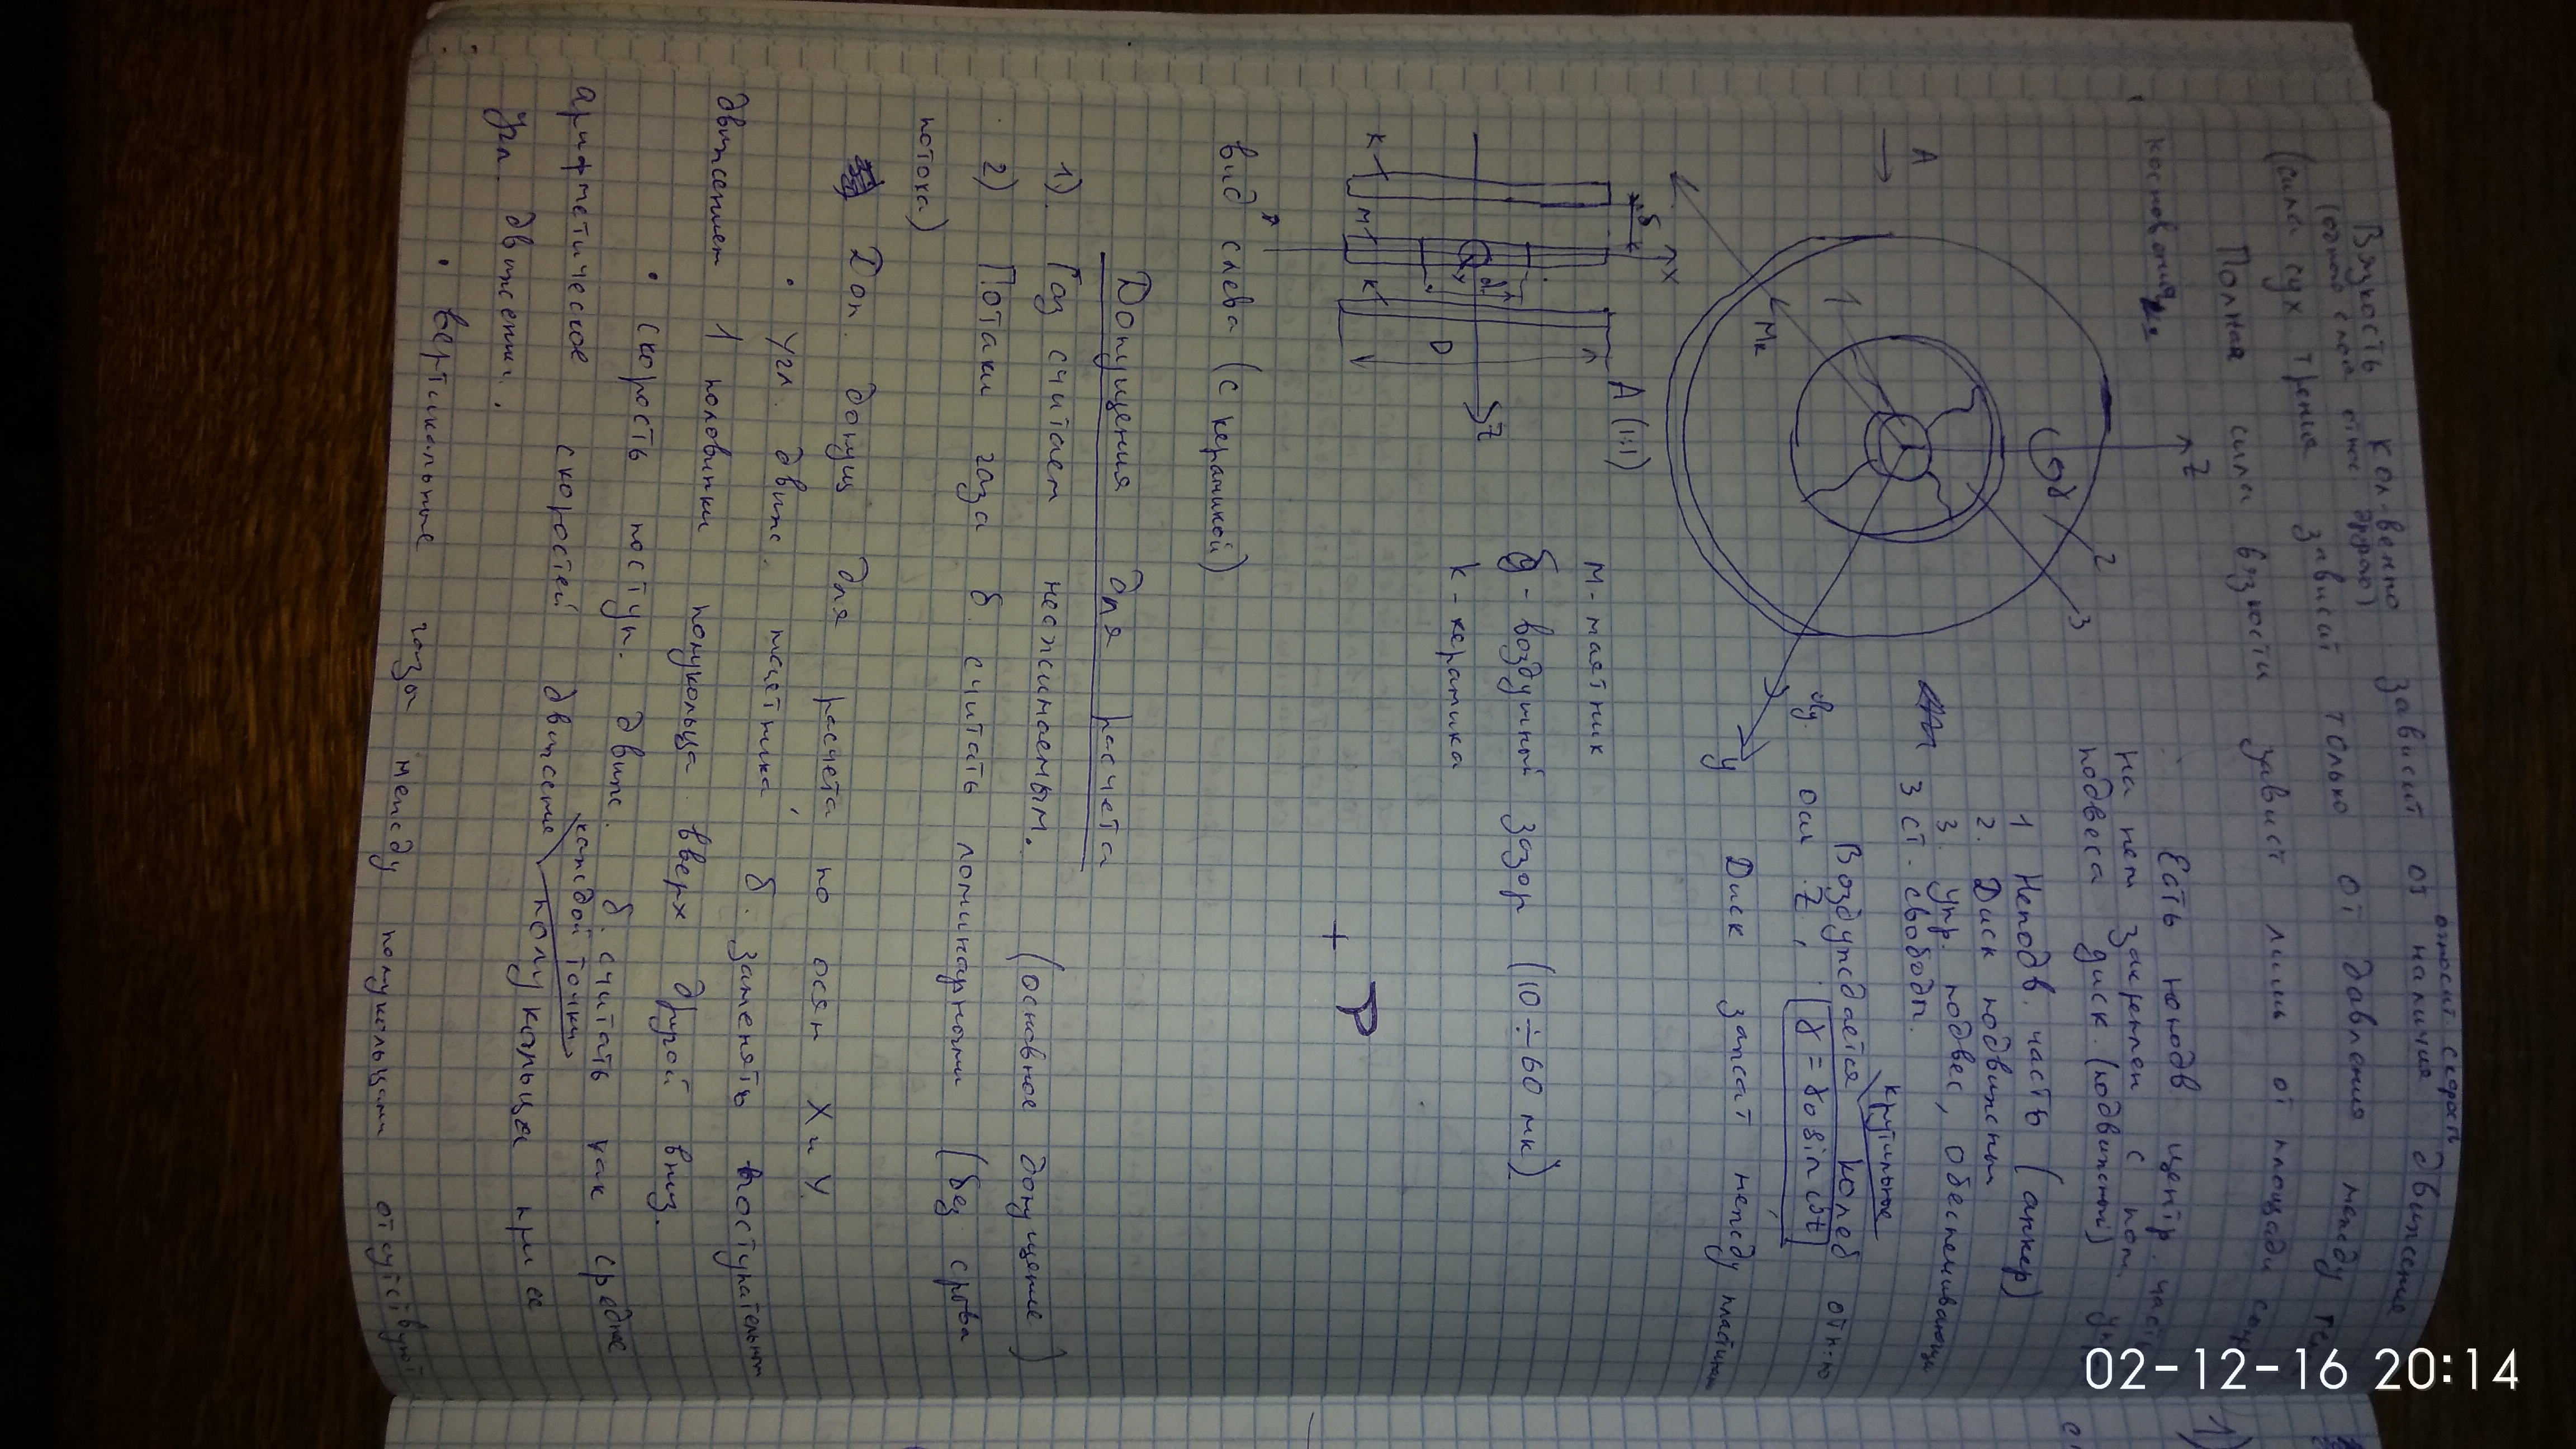 Вязкость кол-венно зависит от наличия относит скорости движения
(одной слоя относ другого)
(сила сух трения зависит только от давления между тел
Полная сила вязкости зависит лишь от площади сопр
коснования.
Есть неподв центр. часть
на нем закреплен с пом. упр
подвеса диск. (подвижный)
1 Неподв. часть (анкер)
2. Диск подвижный
3. Упр. подвес, обеспечивающий
3 ст. свободы.
крутильные
Возбуждается колеб отн-но
оси Z, γ = γ0 sin ωt
Диск зажат между пластинами
A
Z
γ
2
3
1
Mк
У
A (1:1)
X
δ
К
М
К
dr
D
Z
У
М - маятник
δ - воздушный зазор (10 ÷ 60 мк)
К - керамика
вид слева (с керамикой)
+ P
Допущения для расчета
1). Газ считаем несжимаемым. (основное допущение)
2) Потоки газа б. считать ломинарными (без срыва
потока)
Доп. допущ для расчета по осям X и У.
• Угл. движ. маятника б. заменять поступательным
движением 1 половинки полукольца вверх другой вниз.
• Скорость поступ. движ. б. считать как среднее
арифметическое скоростей движение каждой точки полукольца при ее
угл. движении.
• Вертикальные газы между полукольцами отсутствуют
02-12-16 20:14